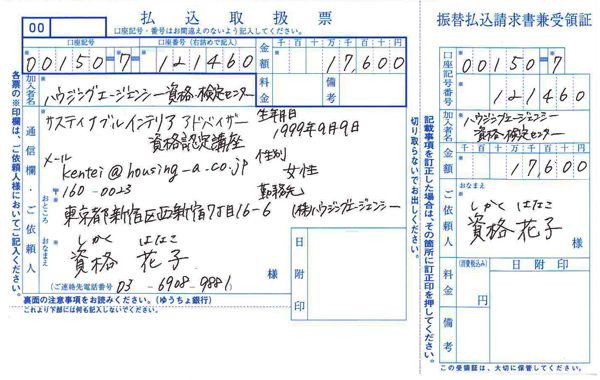 00
払込取扱票
口座記号・番号はお間違えのないよう記入してください。
口座記号
口座番号(右詰めで記入)
00150-7
121460
金額
千百十万千百十円
17,600
加入者名
ハウジングエージェンシー 資格・検定センター
料金
備考
通信欄・ご依頼人
サスティナブル インテリア アドバイザー
資格認定講座
生年月日
1999年9月9日
メール
kentei@housing-a.co.jp
性別
女性
〒160-0023
勤務先
(株)ハウジングエージェンシー
おところ
東京都新宿区西新宿7丁目16-6
おなまえ
しかく はなこ
資格 花子
様
(ご連絡先電話番号 03-6908-9881)
日附印
裏面の注意事項をお読みください。(ゆうちょ銀行)
これより下部には何も記入しないでください。
各票の※印欄は、ご依頼人様においてご記入ください。
切り取らないでお出しください。
記載事項を訂正した場合は、その箇所に訂正印を押してください。
振替払込請求書兼受領証
口座記号番号
00150-7
121460
加入者名
ハウジングエージェンシー
資格・検定センター
金額
千百十万千百十円
17,600
ご依頼人
おなまえ
しかく はなこ
資格 花子
様
料金
(消費税込み)
円
日附印
備考
この受領証は、大切に保管してください。